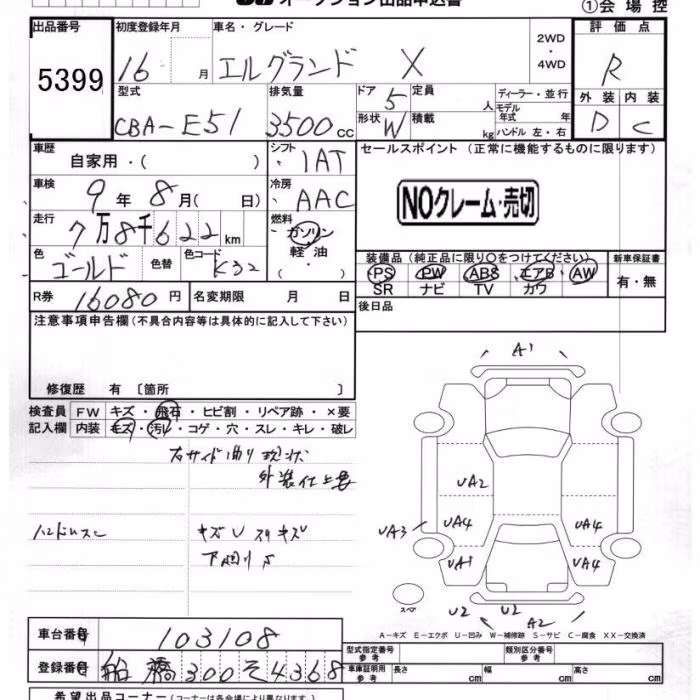 オークション出品申込書
①会場控
出品番号 初度登録年月 車名・グレード 評価点
5399 16 月 エルグランド X 2WD・4WD R
型式 排気量 ドア 5 定員 人 ディーラー・並行 外装 内装
CBA-E51 3500cc 形状 W 積載 kg モデル年式 年 ハンドル 左・右 D C
車歴 自家用・( ) シフト IAT セールスポイント (正常に機能するものに限ります)
車検 9年8月( 日) 冷房 AAC
NOクレーム・売切
走行 7万8千622km 燃料 ガソリン・軽油・( )
色 ゴールド 色替 色コード K32
装備品 (純正品に限り○をつけてください) 新車保証書
PS PW ABS エアB AW 有・無
SR ナビ TV カワ
R券 16080円 名変期限 月 日 後日品
注意事項申告欄 (不具合内容等は具体的に記入して下さい)
修復歴 有 〔箇所 〕
検査員 FW キズ・飛石・ヒビ割・リペア跡・×要
記入欄 内装 キズ・汚レ・コゲ・穴・スレ・キレ・破レ
A1
UA2
UA3 UA4 UA4
UA1 UA4
スペア
U2 U2 A2
A－キズ E－エクボ U－凹み W－補修跡 S－サビ C－腐食 XX－交換済
車台番号 103108
登録番号 船橋 300 そ 4368
型式指定番号 参考 類別区分番号 参考
車庫証明用 参考 長さ cm 幅 cm 高さ cm
希望出品コーナー